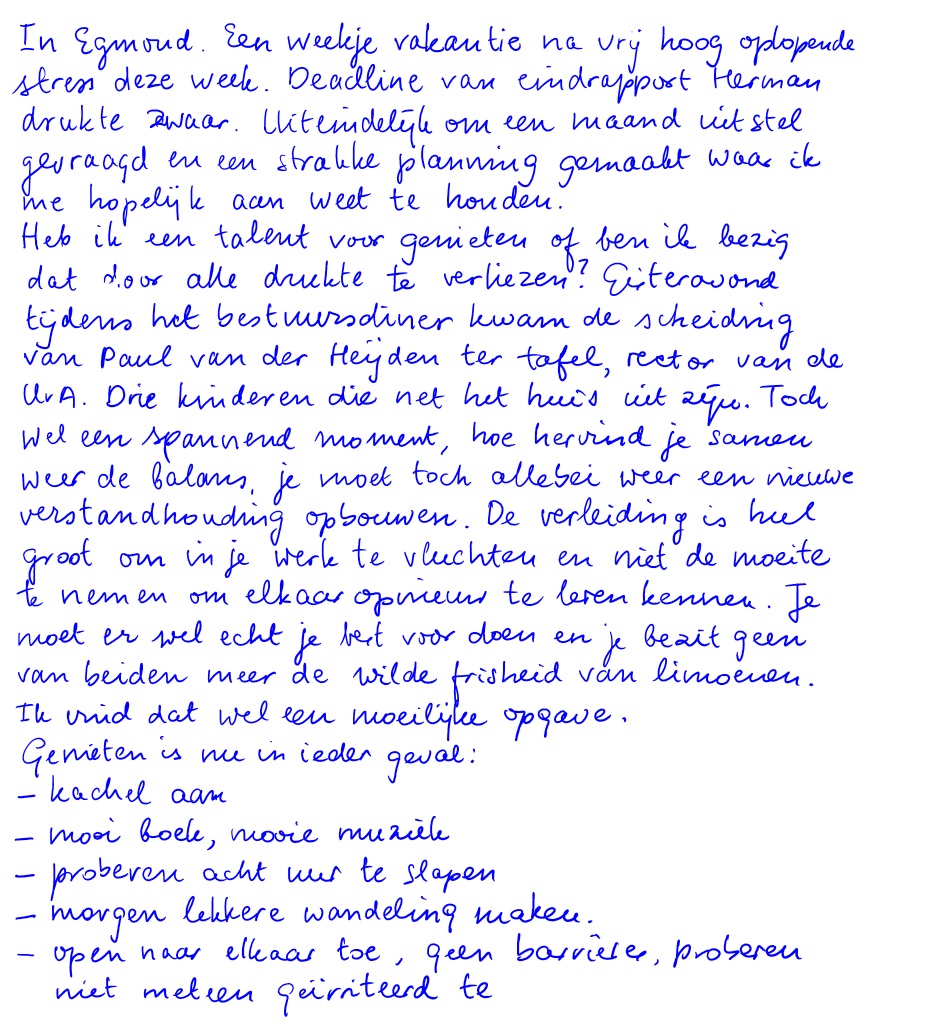 In Egmond. Een weekje vakantie na vrij hoog oplopende
stress deze week. Deadline van eindrapport Herman
drukte zwaar. Uiteindelijk om een maand uitstel
gevraagd en een strakke planning gemaakt waar ik
me hopelijk aan weet te houden.
Heb ik een talent voor genieten of ben ik bezig
dat door alle drukte te verliezen? Gisteravond
tijdens het bestuursdiner kwam de scheiding
van Paul van der Heijden ter tafel, rector van de
UvA. Drie kinderen die net het huis uit zijn. Toch
wel een spannend moment, hoe hervind je samen
weer de balans, je moet toch allebei weer een nieuwe
verstandhouding opbouwen. De verleiding is heel
groot om in je werk te vluchten en niet de moeite
te nemen om elkaar opnieuw te leren kennen. Je
moet er wel echt je best voor doen en je bezit geen
van beiden meer de wilde frisheid van limoenen.
Ik vind dat wel een moeilijke opgave.
Genieten is nu in ieder geval:
– kachel aan
– mooi boek, mooie muziek
– proberen acht uur te slapen
– morgen lekkere wandeling maken.
– open naar elkaar toe, geen barrières, proberen
niet meteen geïrriteerd te